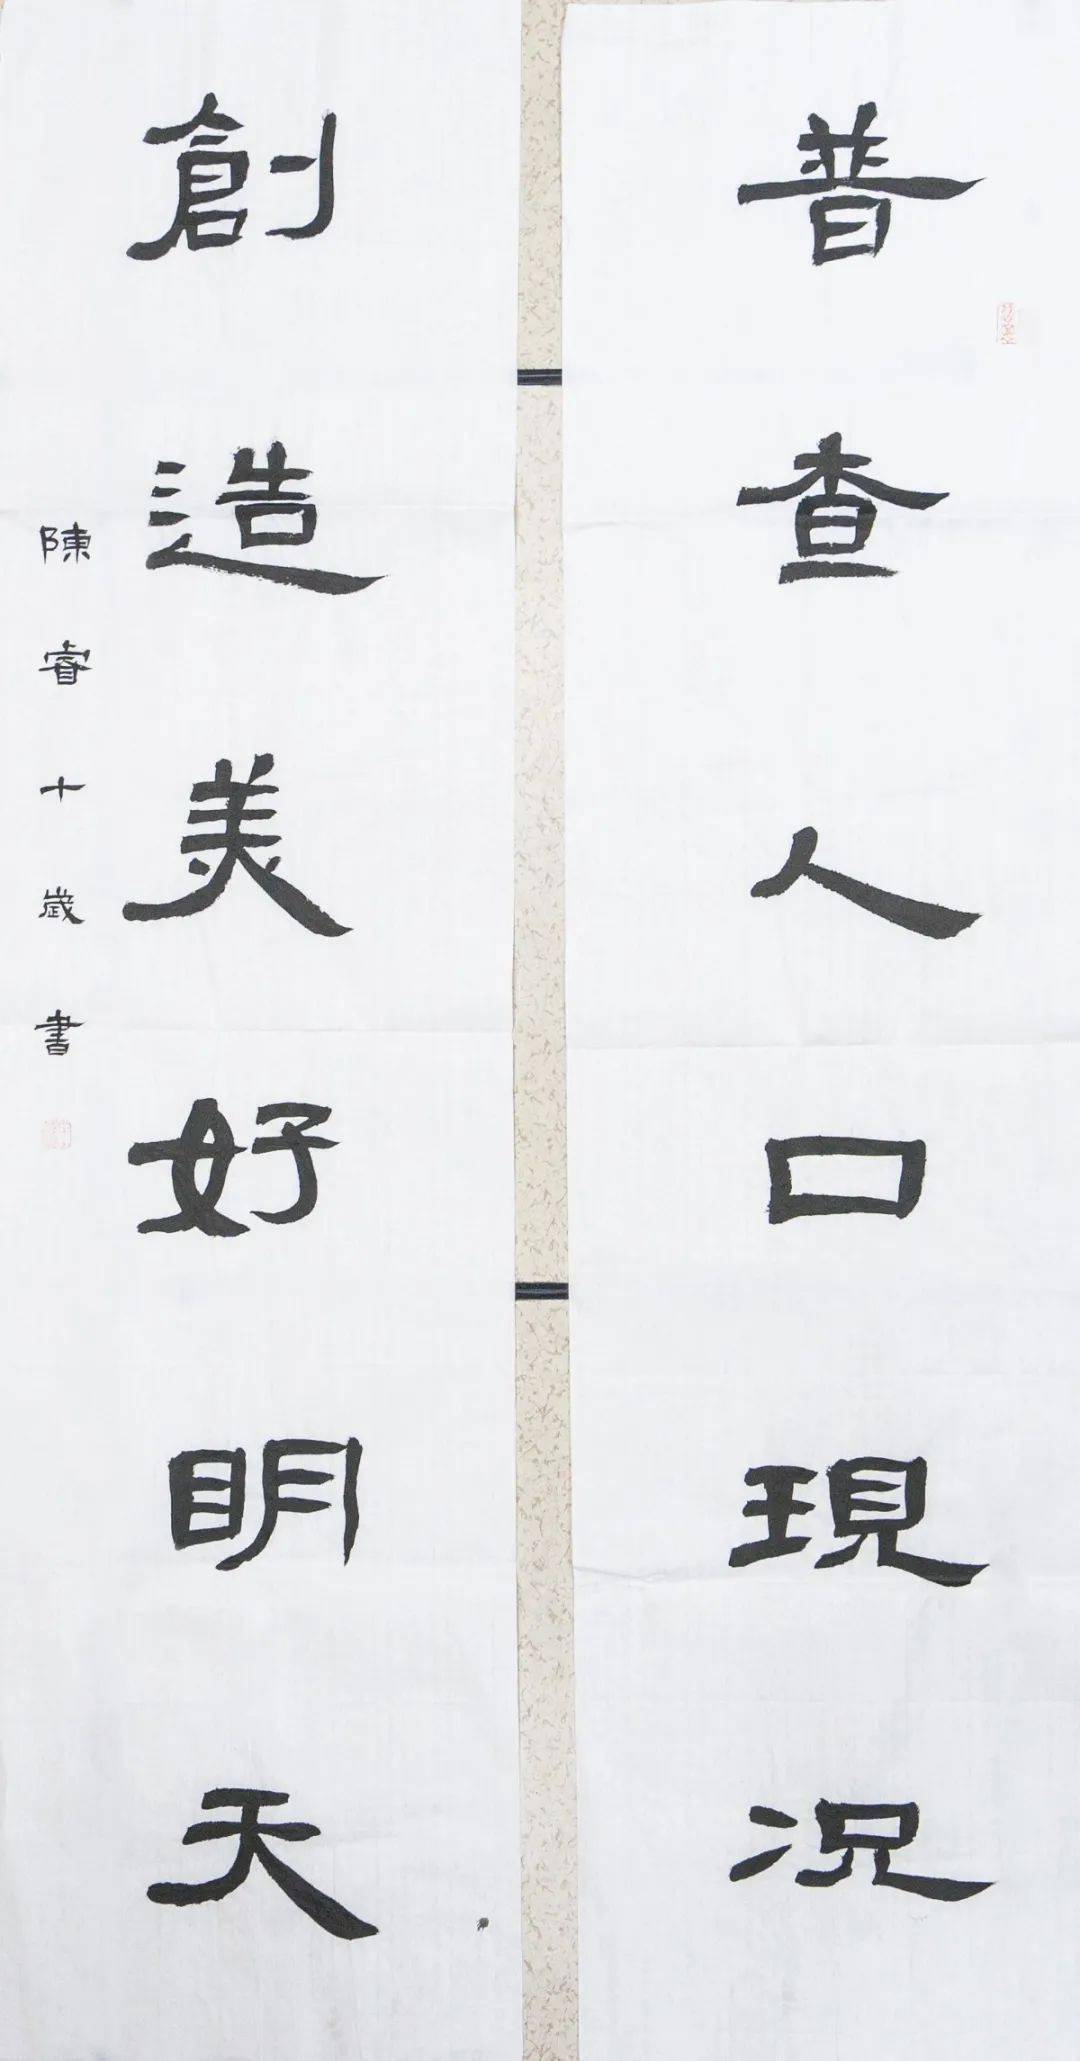 普查人口現况
創造美好明天
陳睿十歲書